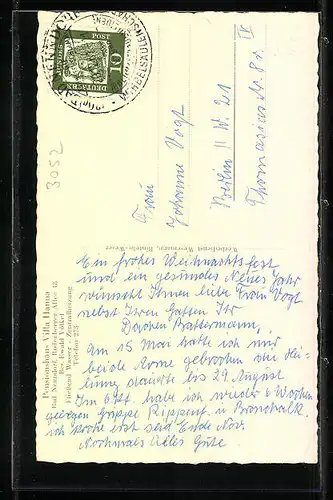 Pensionshaus Villa Hanna
Bad Nenndorf, Rodenberger Allee 18
Bes. Ewald Völkel
Fließend Wasser - Zentralheizung
Telefon 273
DEUTSCHE
POST
10
3052
Frau
Johanne Vogt
Berlin N.W. 21
Thomasiusstr.
IV
Ein frohes Weihnachtsfest
und ein gesundes Neues Jahr
wünscht Ihnen liebe Frau Vogt
nebst Ihren Gatten Ihr
Am 15 Mai hatte ich mir
beide Arme gebrochen die Hei-
lung dauerte bis 29. August
Im Okt. habe ich wieder 6 Wochen
gelegen Grippe Rippenf. u Bronchalk.
ich koche erst seid Ende Nov.
Nochmals Alles Gute